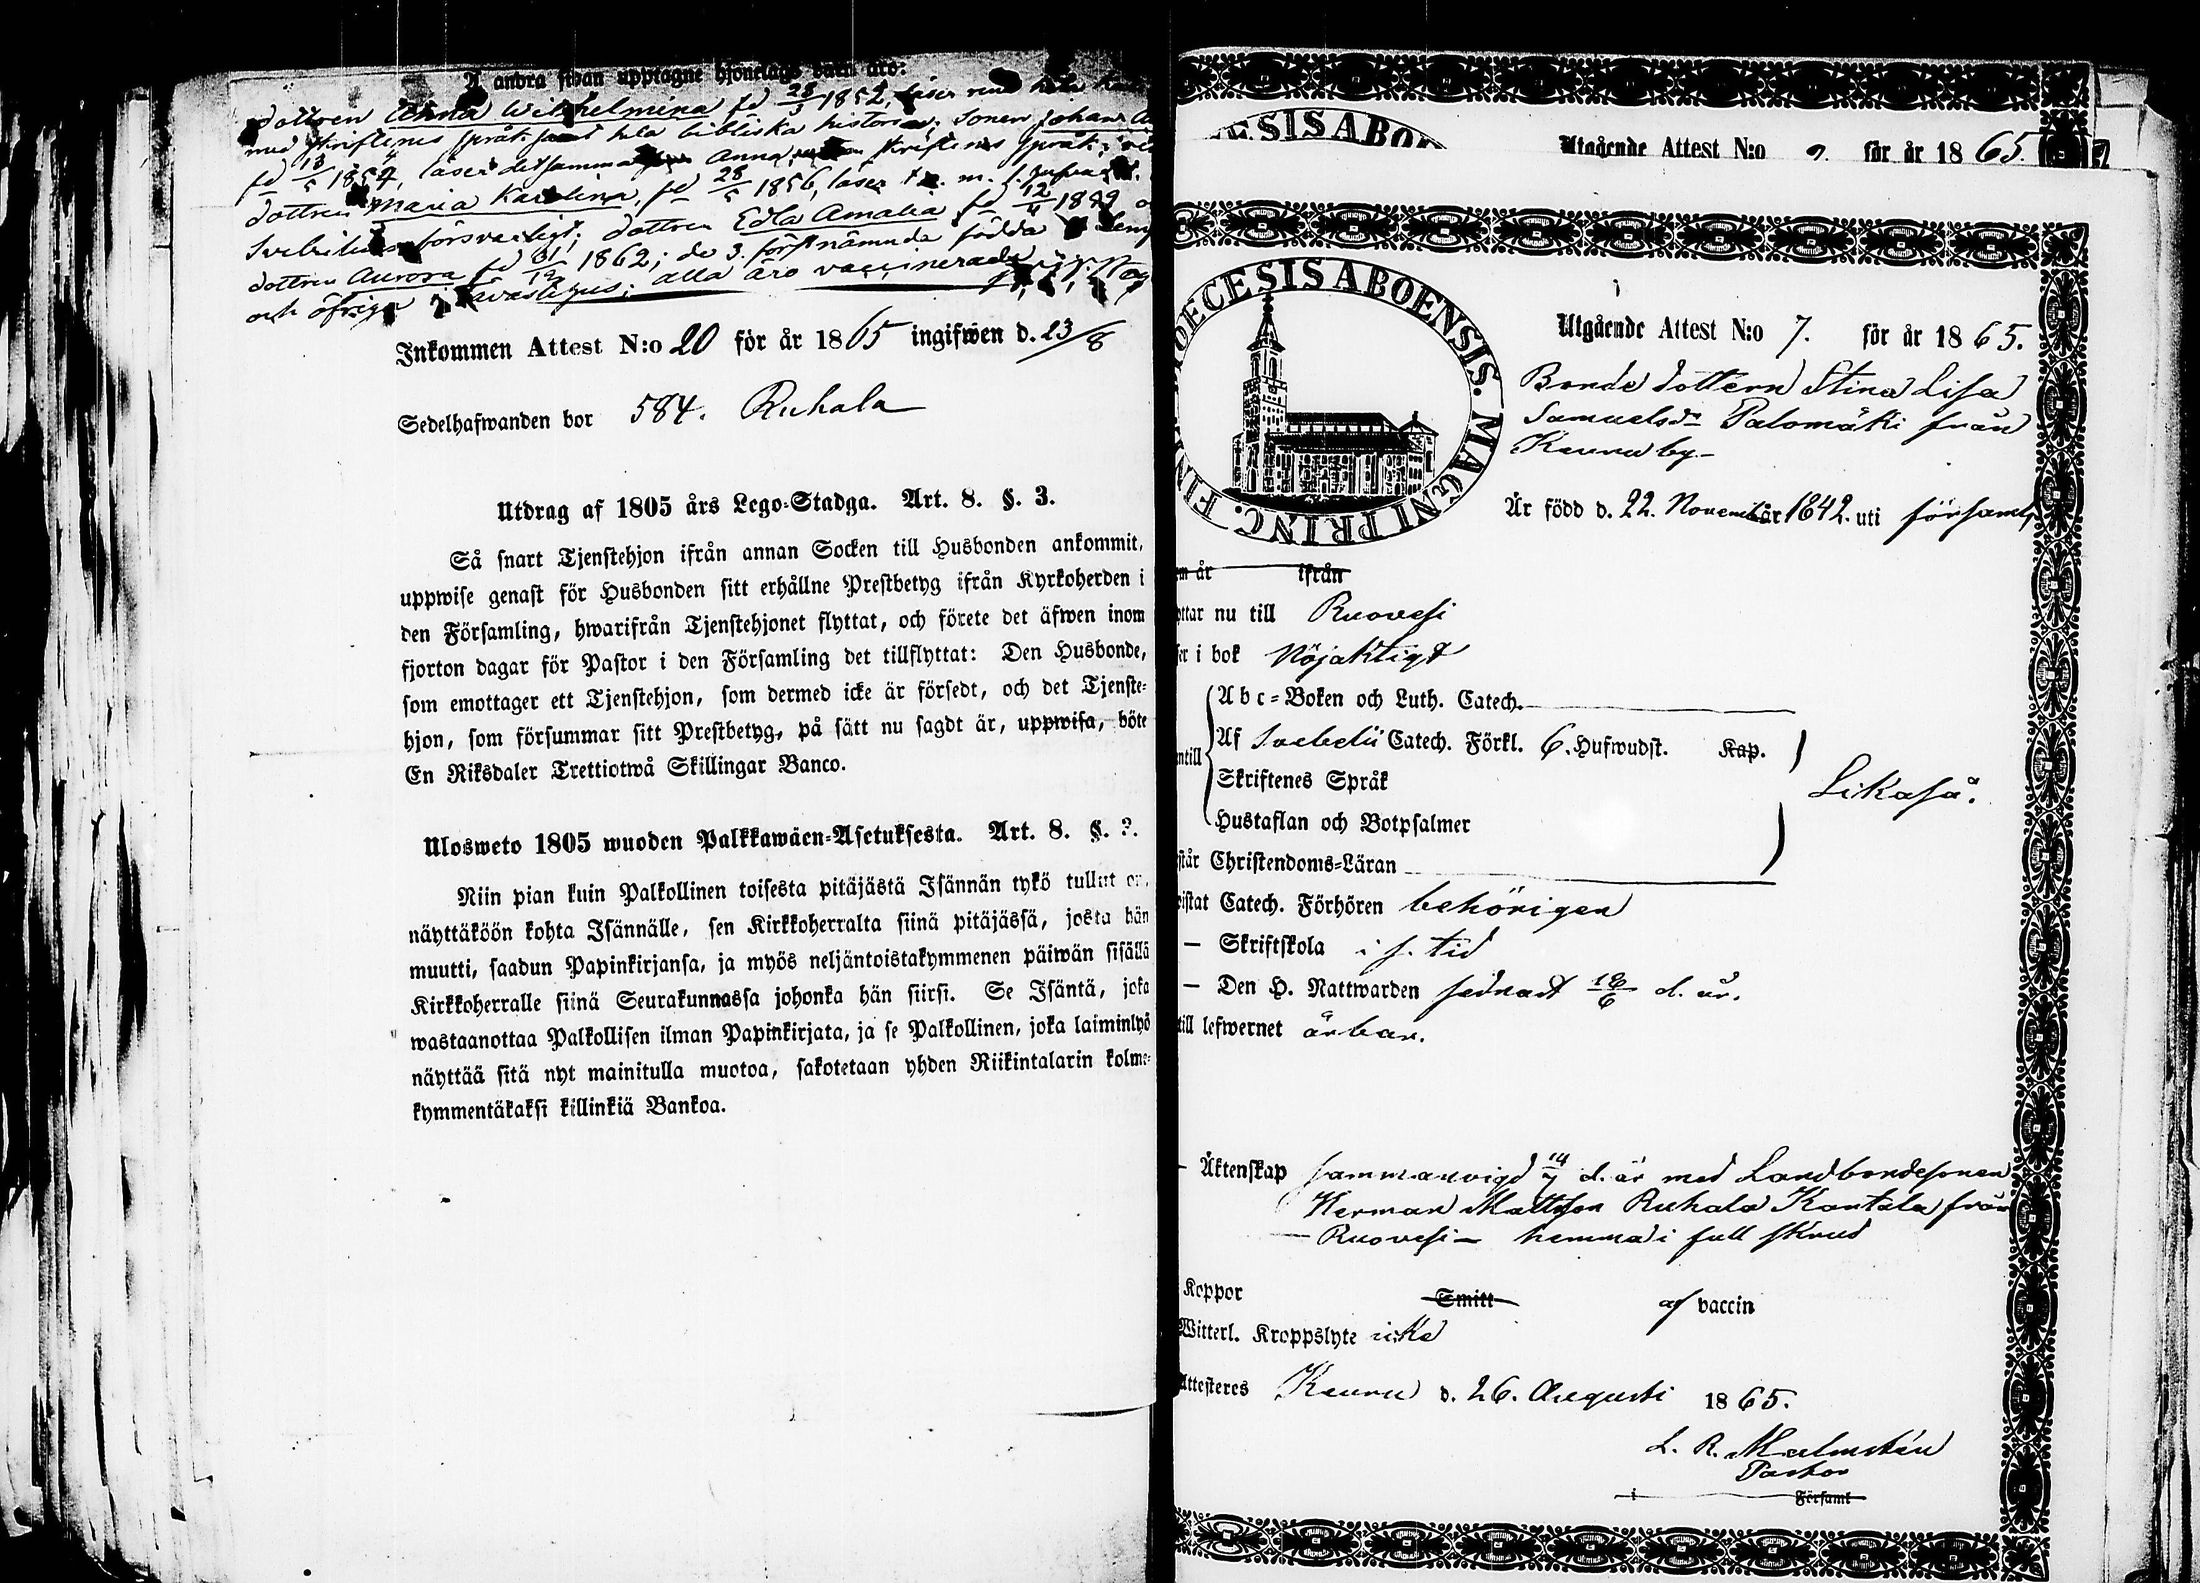 å andra sidan upptagne hjonelags barn äro:
dottren Anna Wilhelmina fd 28/5 1852, läser
med skriftenes språk samt hla bibliska historien; Sonen Johan
fd 13/5 1854, läser detsamma Anna, skriftenes språk;
dottren Maria Karolina, fd 28/5 1856, läser
försvarligt; dottren Edla Amalia fd 12/
dottren Aurora fd 1862; de 3. förstnämnda födda
och öfriga alla äro vaccinerade
Inkommen Attest N:o 20 för år 1865 ingifwen d. 23/8
Sedelhafwanden bor 584. Ruhala
Utdrag af 1805 års Lego-Stadga. Art. 8. §. 3.
Så snart Tjenstehjon ifrån annan Socken till Husbonden ankommit,
uppwise genast för Husbonden sitt erhållne Prestbetyg ifrån Kyrkoherden i
den Församling, hwarifrån Tjenstehjonet flyttat, och förete det äfwen inom
fjorton dagar för Pastor i den Församling det tillflyttat: Den Husbonde,
som emottager ett Tjenstehjon, som dermed icke är försedt, och det Tjenste-
hjon, som försummar sitt Prestbetyg, på sätt nu sagdt är, uppwisa, böte
En Riksdaler Trettiotwå Skillingar Banco.
Ulosweto 1805 wuoden Palkkawäen-Asetuksesta. Art. 8. §. 3.
Niin pian kuin Palkollinen toisesta pitäjästä Isännän tykö tullut on,
näyttäköön kohta Isännälle, sen Kirkkoherralta siinä pitäjässä, josta hän
muutti, saadun Papinkirjansa, ja myös neljäntoistakymmenen päiwän sisällä
Kirkkoherralle siinä Seurakunnassa johonka hän siirsi. Se Isäntä, joka
wastaanottaa Palkollisen ilman Papinkirjata, ja se Palkollinen, joka laiminlyö
näyttää sitä nyt mainitulla muotoa, sakotetaan yhden Riikintalarin kolme-
kymmentäkaksi killinkiä Bankoa.
ESIS ABO
Utgående Attest N:o 9. för år 1865.
DIOECESIS ABOENSIS. MAGNI PRINC. FIN
Utgående Attest N:o 7. för år 1865.
Bonde dottern Stina Lisa
Samuelsdr Palomäki från
Keuru by-
Är född d. 22. November 1842. uti församl,
m år ifrån
yttar nu till Ruovesi
er i bok Nöjaktigt
Abc-Boken och Luth. Catech.
ntill Af Svebelii Catech. Förkl. 6. Hufwudst. Kap.
Skriftenes Språk
Likaså.
Hustaflan och Botpsalmer
står Christendoms-Läran
wistat Catech. Förhören behörigen
— Skriftskola i s. tid
— Den H. Nattwarden sednast 18/6 d. år.
till lefwernet ärbar.
— Äktenskap sammanvigd 14/7 d. år med Landbondesonen
Herman Mattsson Ruhala Kantala från
Ruovesi - hemma i full skrud
Koppor Smitt af vaccin
Witterl. Kroppslyte icke
Attesteres Keuru d. 26. Augusti 1865.
L. R. Malmstén
Pastor
i Församl